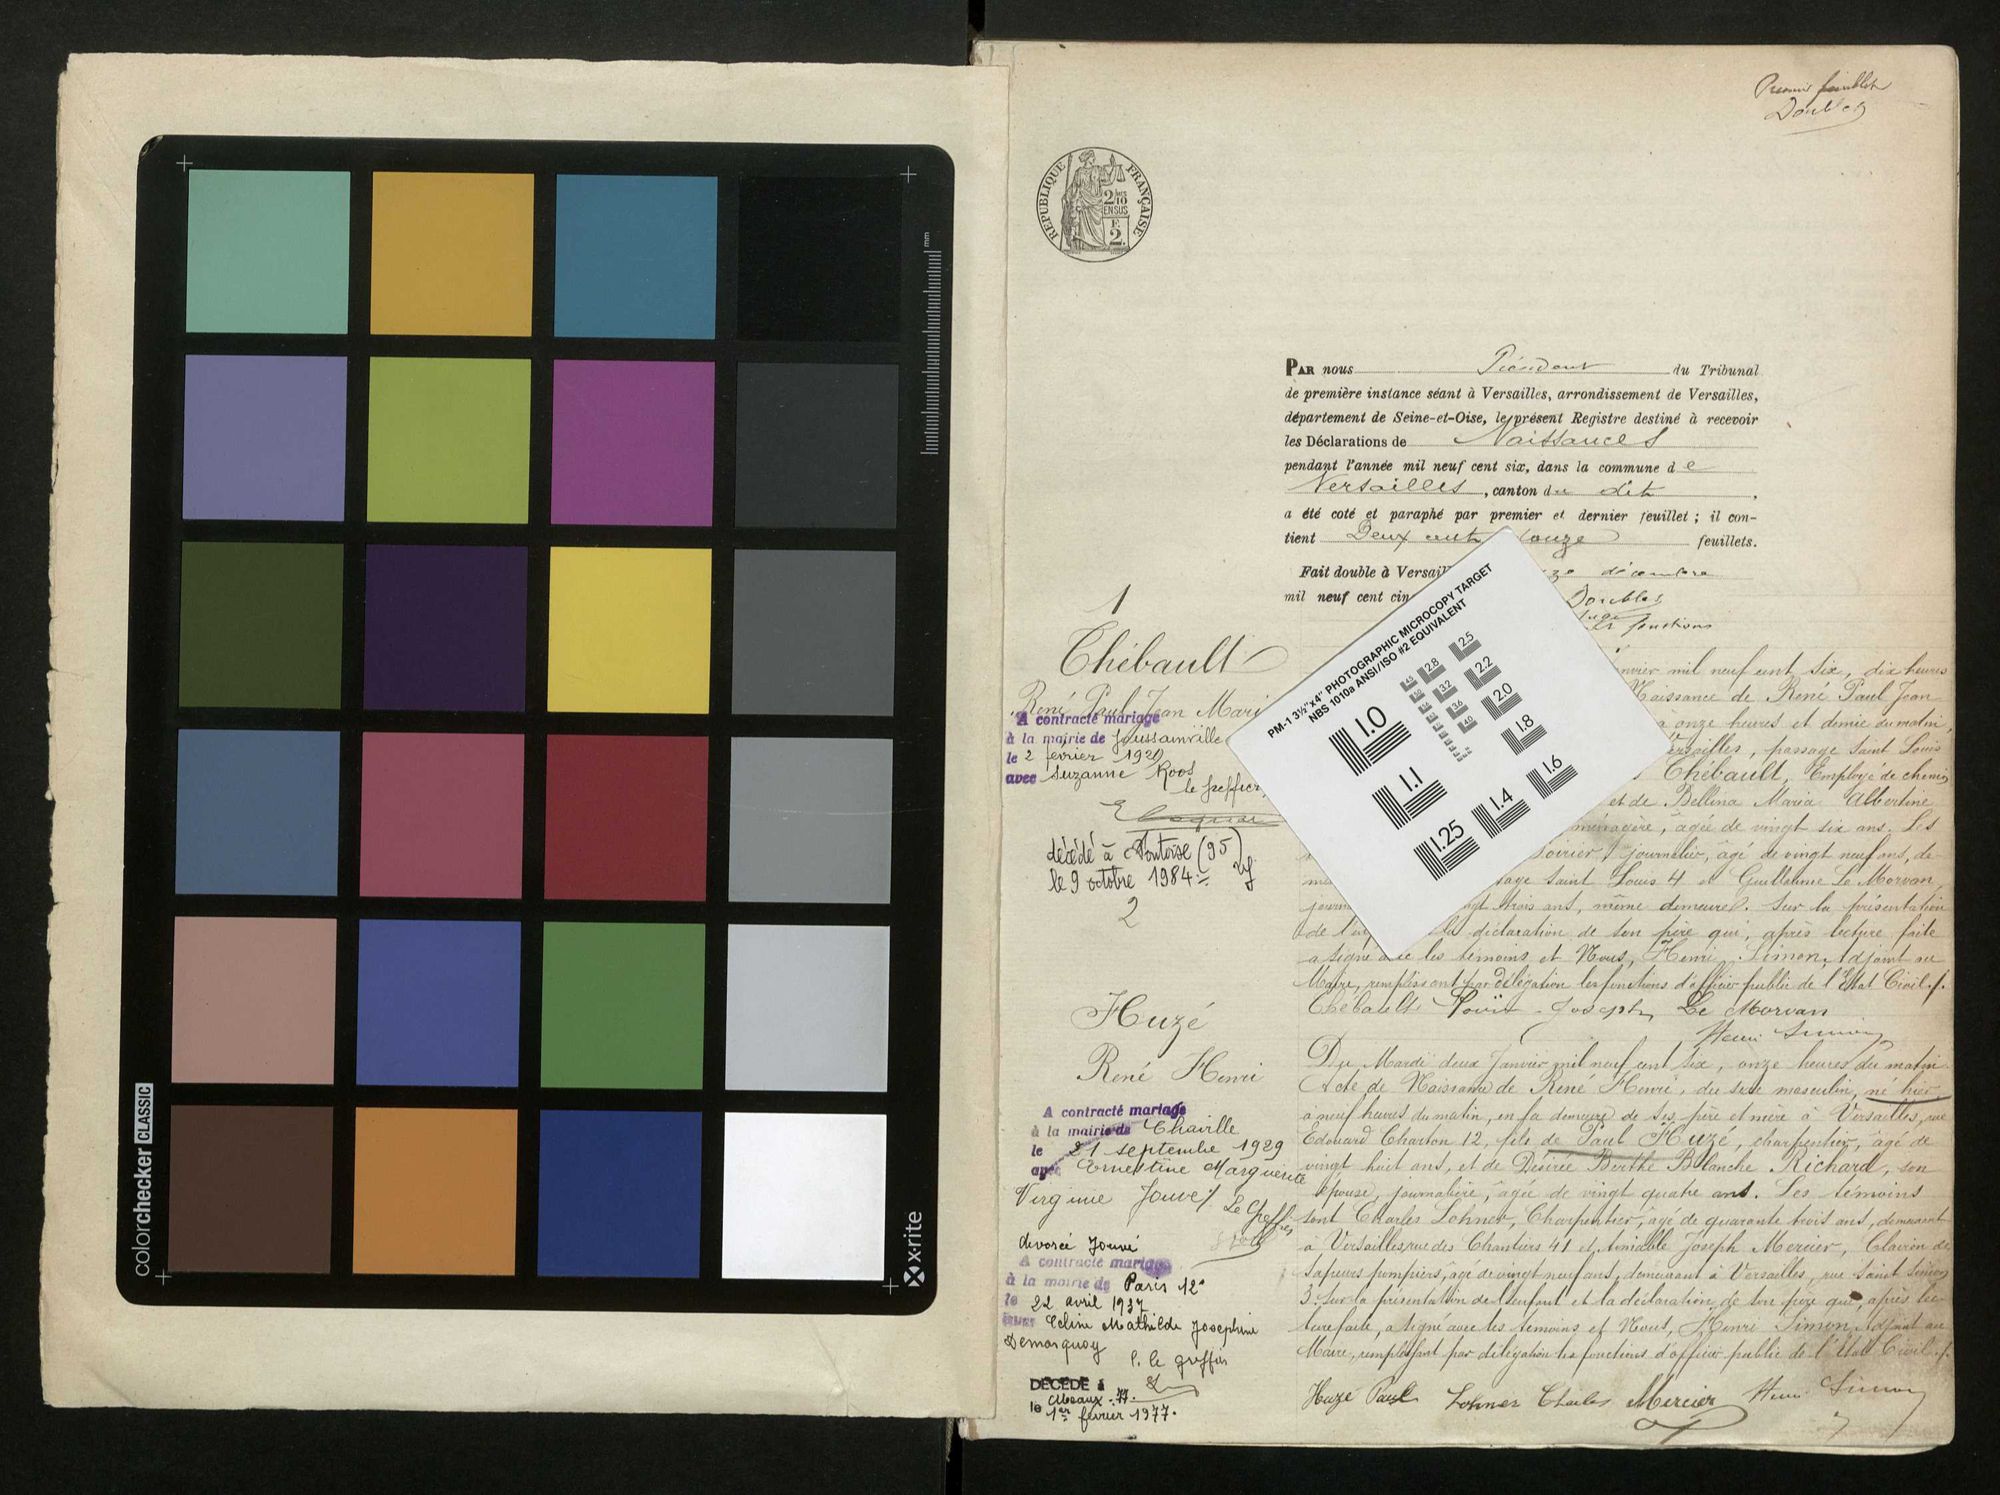 mm
colorchecker CLASSIC
x-rite
Premier feuillet
Doublet
RÉPUBLIQUE FRANÇAISE
2/10
EN SUS
2
PAR nous Président du Tribunal
de première instance séant à Versailles, arrondissement de Versailles,
département de Seine-et-Oise, le présent Registre destiné à recevoir
les Déclarations de Naissances
pendant l'année mil neuf cent six, dans la commune de
Versailles, canton du dit.
a été coté et paraphé par premier et dernier feuillet ; il con-
tient Deux cent douze feuillets.
Fait double à Versail décembre
mil neuf cent cin Doublet
Juge
fonctions
PM-1 3½"x4" PHOTOGRAPHIC MICROCOPY TARGET
NBS 1010a ANSI/ISO #2 EQUIVALENT
1.0
1.1
1.25
1.4
1.6
1.8
2.0
2.2
2.5
2.8
3.2
3.6
4.0
4.5
1
Thébault
René Paul Jean Mari
A contracté mariage
à la mairie de Goussainville
le 2 février 1929
avec Suzanne Roos
le greffier
décédé à Pontoise (95)
le 9 octobre 1984
nvier mil neuf cent six, dix heures
Naissance de René Paul Jean
à onze heures et demie du matin,
ersailles, passage Saint Louis
Thébault, Employé de chemin
et de Bellina Maria Albertine
ménagère, âgée de vingt six ans. Les
journalier, âgé de vingt neuf ans, de
sage Saint Louis 4 et Guillaume Le Morvan,
journ gt trois ans, même demeure. Sur la présentation
de l'en la déclaration de son père qui, après lecture faite
a signé avec les témoins et Nous, Henri Simon, Adjoint au
Maire, remplissant par délégation les fonctions d'officier public de l'Etat Civil.
Thébault Joseph Le Morvan
Henri Simon
2
Huzé
René Henri
A contracté mariage
à la mairie de Chaville
le 21 septembre 1929
avec Ernestine Marguerite
Virginie Jouve Le Greffier
divorcé Jouvé
A contracté mariage
à la mairie de Paris 12e
le 22 avril 1937
avec Celine Mathilde Josephine
Demarquay
P. le greffier
DÉCÉDÉ à Meaux - 77 -
le 1er février 1977.
Du Mardi deux Janvier mil neuf cent six, onze heures du matin.
Acte de Naissance de René Henri, du sexe masculin, né hier
à neuf heures du matin, en la demeure de ses père et mère à Versailles, rue
Edouard Charton 12, fils de Paul Huzé, charpentier, âgé de
vingt huit ans, et de Désirée Berthe Blanche Richard, son
épouse, journalière, âgée de vingt quatre ans. Les témoins
sont Charles Lohner, Charpentier, âgé de quarante trois ans, demeurant
à Versailles, rue des Chantiers 41 et Aimable Joseph Mercier, Clairon de
Sapeurs pompiers, âgé de vingt neuf ans, demeurant à Versailles, rue Saint Simon
3. Sur la présentation de l'enfant et la déclaration de son père qui, après lec-
ture faite, a signé avec les témoins et Nous, Henri Simon, Adjoint au
Maire, remplissant par délégation les fonctions d'officier public de l'Etat Civil.
Huzé Paul Lohner Charles Mercier Henri Simon